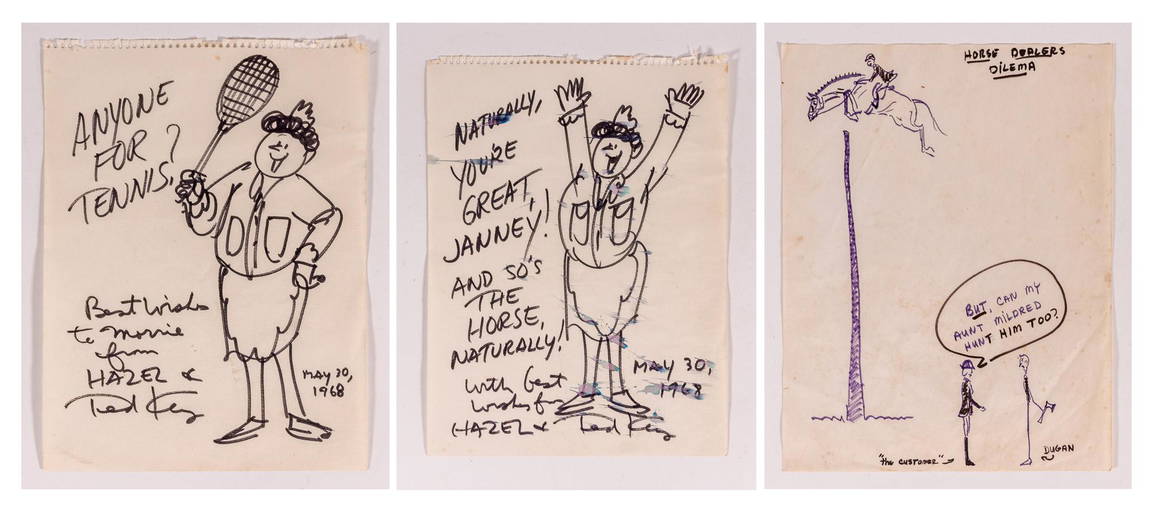 ANYONE
FOR
TENNIS?
Best Wishes
to Morrie
from
HAZEL &
Ted Key
MAY 30,
1968
NATURALLY,
YOU'RE
GREAT,
JANNEY!
AND SO'S
THE
HORSE,
NATURALLY!
With best
wishes from
HAZEL & Ted Key
MAY 30,
1968
HORSE DEALERS
DILEMA
BUT, CAN MY
AUNT MILDRED
HUNT HIM TOO?
"the CUSTOMER"
DUGAN